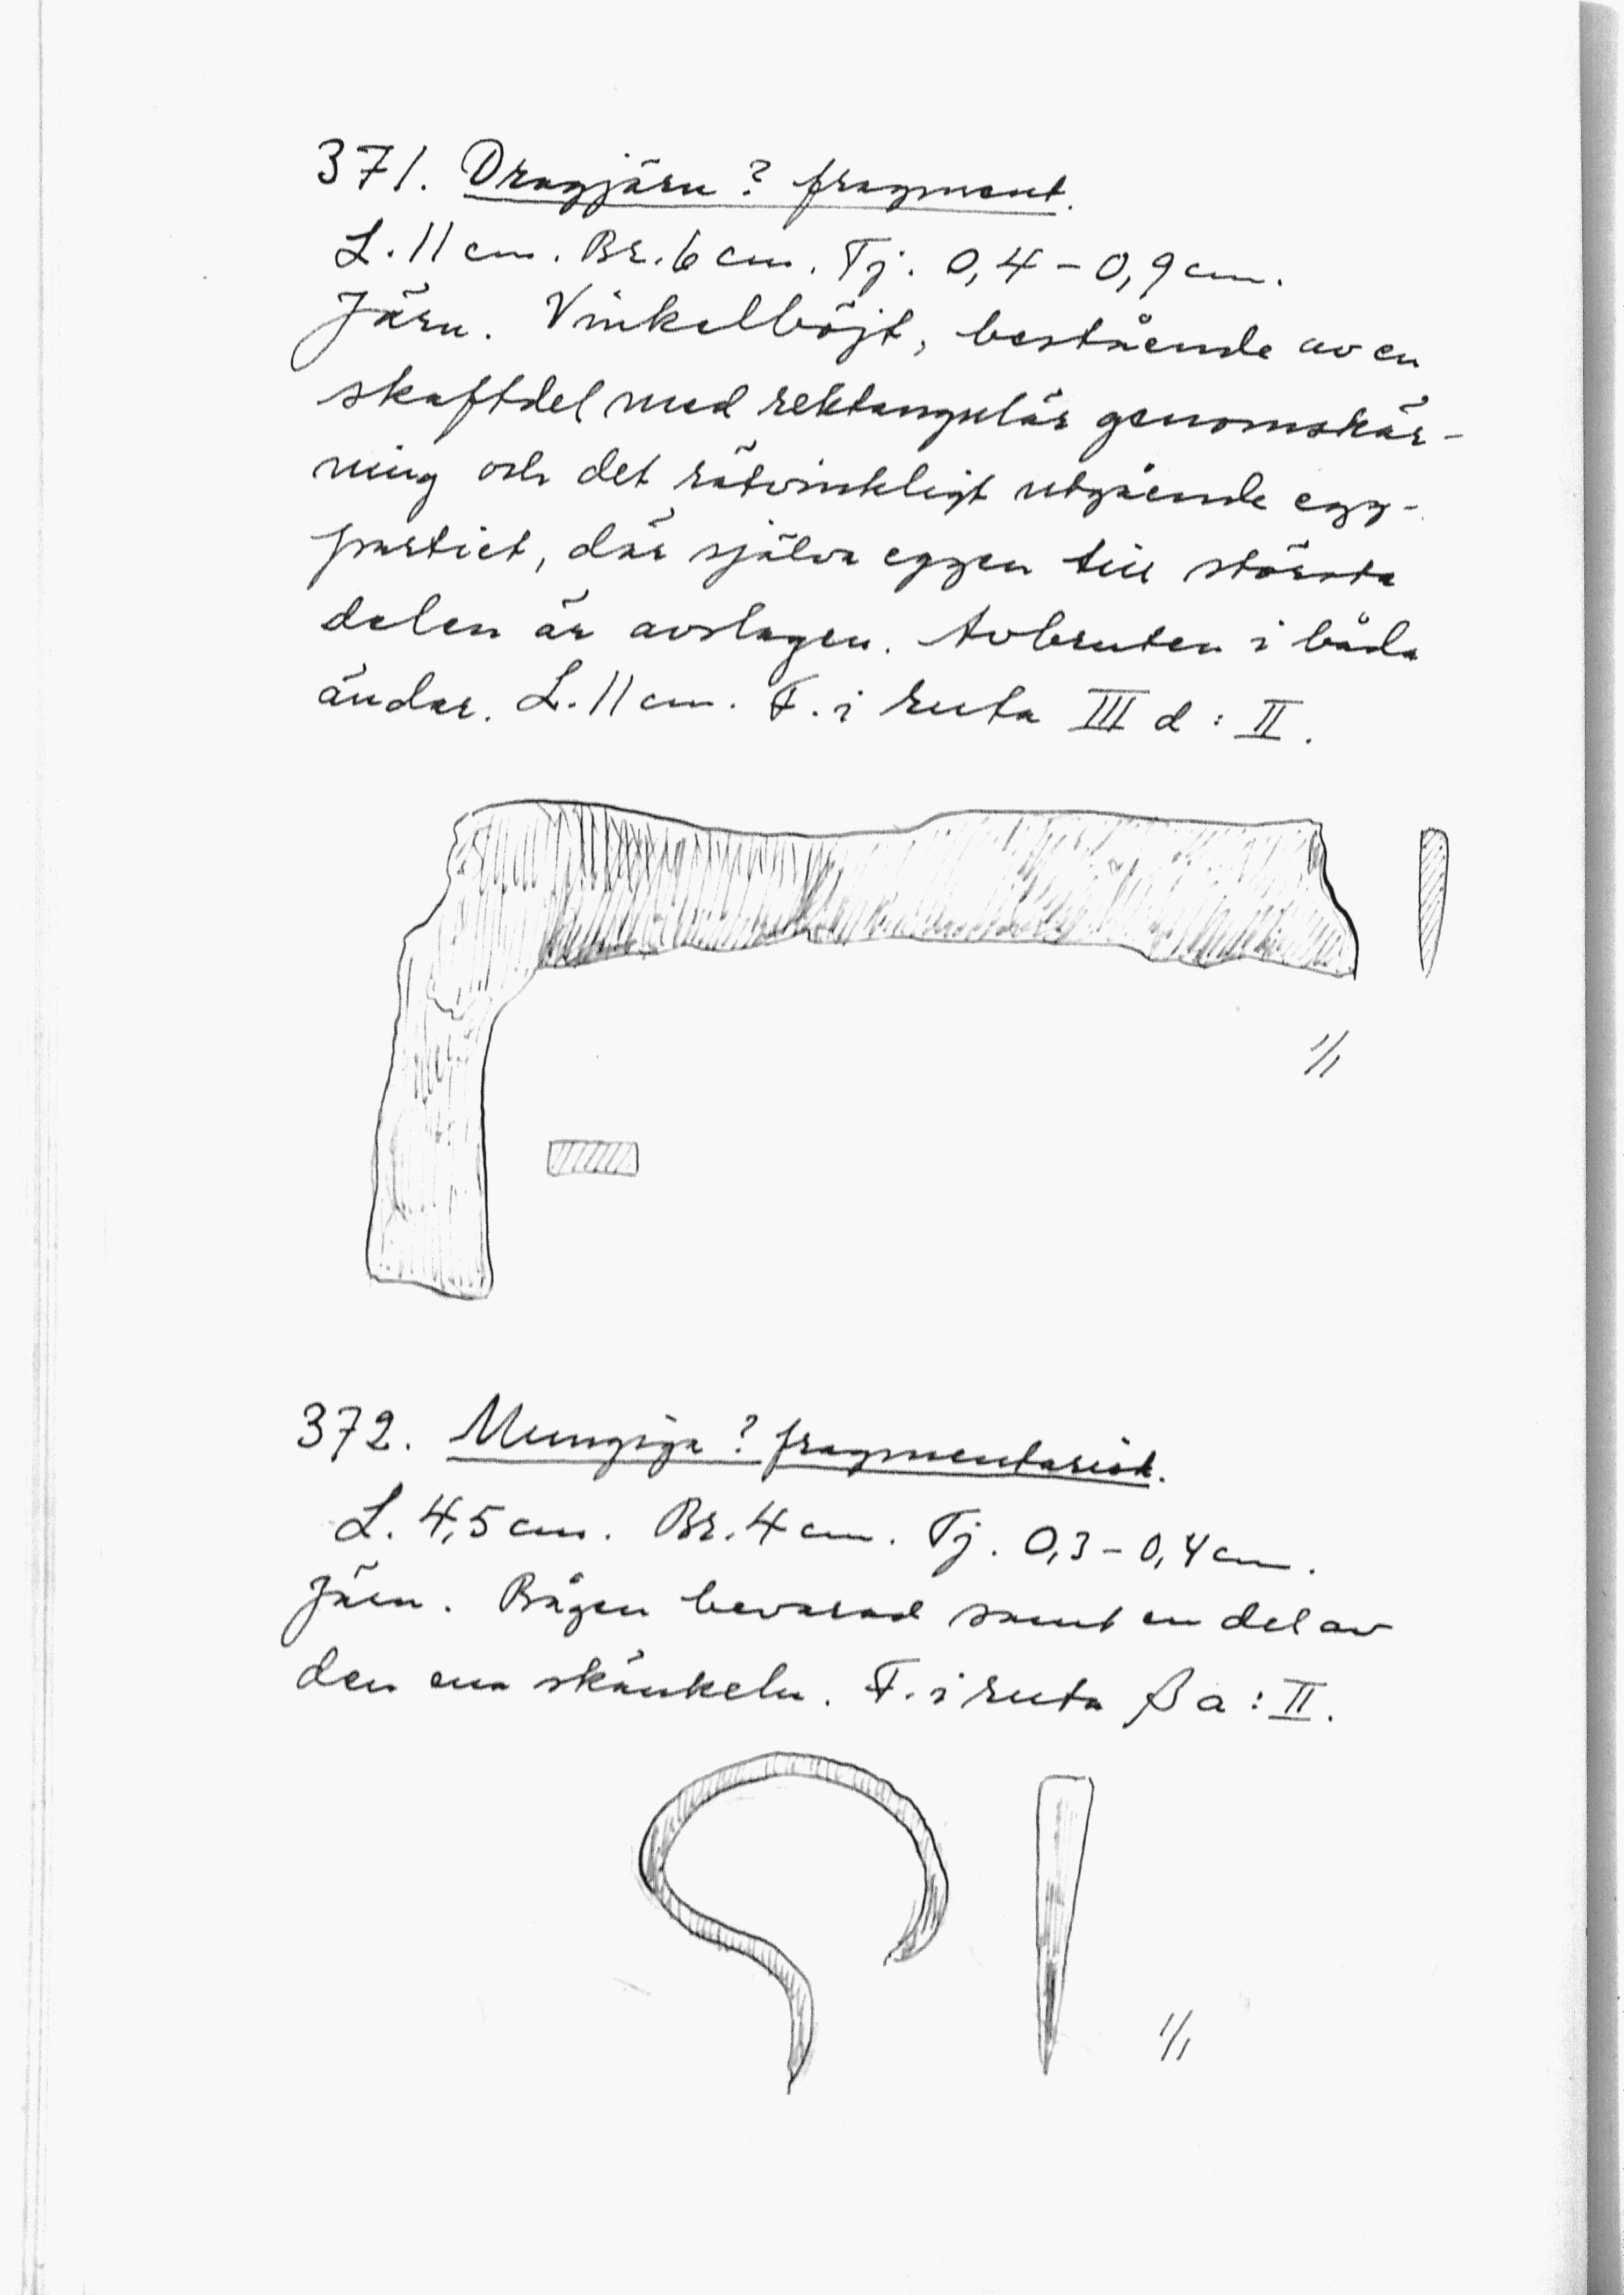 371. Dragjärn? fragment.
L. 11 cm. Br. 6 cm. Tj. 0,4 – 0,9 cm.
Järn. Vinkelböjt, bestående av en
skaftdel med rektangulär genomskär-
ning och det rätvinkligt utgående egg-
partiet, där själva eggen till största
delen är avslagen. Avbruten i båda
ändar. L. 11 cm. F. i ruta III d : II.
1/1
372. Mungiga? fragmentarisk.
L. 4,5 cm. Br. 4 cm. Tj. 0,3 – 0,4 cm.
Järn. Bågen bevarad samt en del av
den ena skänkeln. F. i ruta β a : II.
1/1